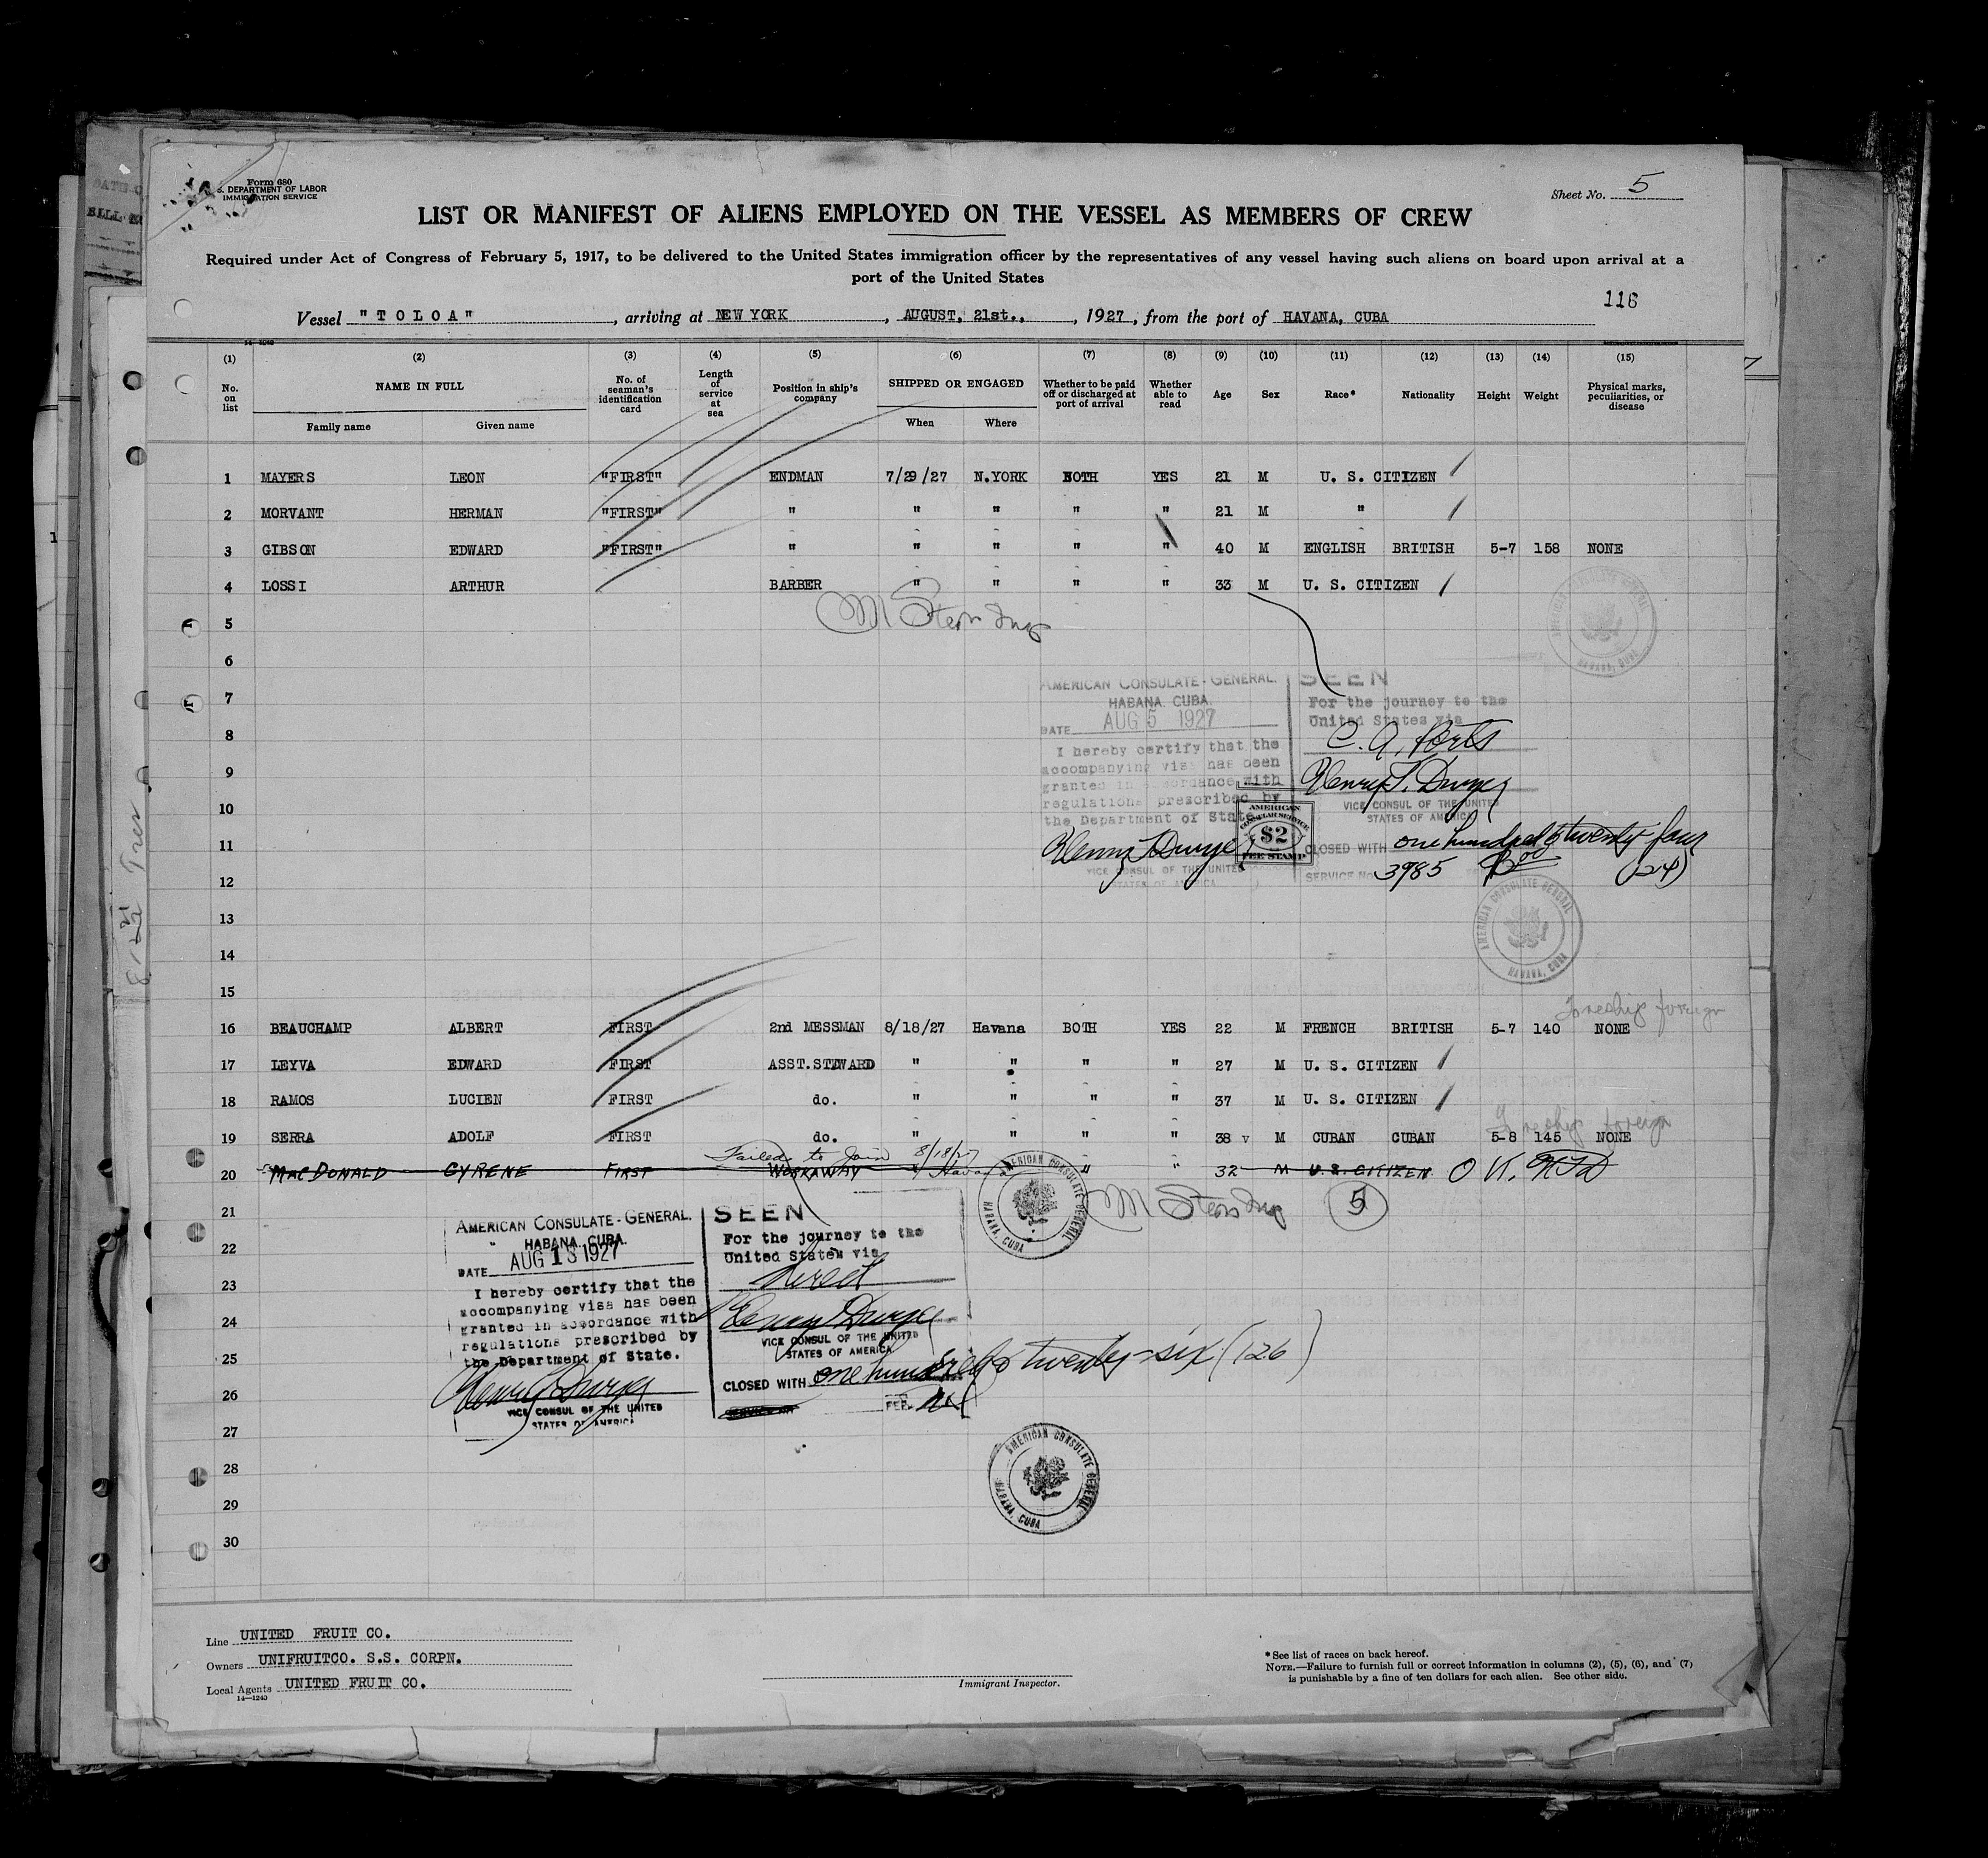 Form 680
S. DEPARTMENT OF LABOR
IMMIGRATION SERVICE
Sheet No. 5
LIST OR MANIFEST OF ALIENS EMPLOYED ON THE VESSEL AS MEMBERS OF CREW
Required under Act of Congress of February 5, 1917, to be delivered to the United States immigration officer by the representatives of any vessel having such aliens on board upon arrival at a
port of the United States
116
Vessel "TOLOA", arriving at NEW YORK, AUGUST, 21st., , 1927, from the port of HAVANA, CUBA
(1) (2) (3) (4) (5) (6) (7) (8) (9) (10) (11) (12) (13) (14) (15)
No. on list NAME IN FULL No. of seaman's identification card Length of service at sea Position in ship's company SHIPPED OR ENGAGED Whether to be paid off or discharged at port of arrival Whether able to read Age Sex Race* Nationality Height Weight Physical marks, peculiarities, or disease
Family name Given name When Where
1 MAYERS LEON "FIRST" ENDMAN 7/29/27 N.YORK BOTH YES 21 M U. S. CITIZEN
2 MORVANT HERMAN "FIRST" " " " " " 21 M "
3 GIBSON EDWARD "FIRST" " " " " " 40 M ENGLISH BRITISH 5-7 158 NONE
4 LOSSI ARTHUR BARBER " " " " 33 M U. S. CITIZEN
M Stern Insp
5
6
7
8
9
10
11
12
13
14
15
AMERICAN CONSULATE-GENERAL.
HABANA. CUBA.
DATE AUG 5 1927
I hereby certify that the
accompanying visa has been
granted in accordance with
regulations prescribed by
the Department of State
VICE CONSUL OF THE UNITED
STATES OF AMERICA
SEEN
For the journey to the
United States via
C. A. Ports
Henry T. Dwyer
VICE CONSUL OF THE UNITED
STATES OF AMERICA
CLOSED WITH one hundred & twenty four
SERVICE No 3985 (124)
AMERICAN
CONSULAR SERVICE
$2
FEE STAMP
AMERICAN CONSULATE GENERAL
HABANA, CUBA
16 BEAUCHAMP ALBERT FIRST 2nd MESSMAN 8/18/27 Havana BOTH YES 22 M FRENCH BRITISH 5-7 140 NONE
17 LEYVA EDWARD FIRST ASST.STEWARD " " " " 27 M U. S. CITIZEN
18 RAMOS LUCIEN FIRST do. " " " " 37 M U. S. CITIZEN
19 SERRA ADOLF FIRST do. " " " " 38 v M CUBAN CUBAN 5-8 145 NONE
Failed to Join 8/18/27
20 MacDONALD CYRENE FIRST WORKAWAY " Havana " " 32 M U. S. CITIZEN O.K.
M Stern Insp 5
21
22
23
24
25
26
27
28
29
30
AMERICAN CONSULATE-GENERAL.
HABANA. CUBA.
DATE AUG 18 1927
I hereby certify that the
accompanying visa has been
granted in accordance with
regulations prescribed by
the Department of State.
VICE CONSUL OF THE UNITED
STATES OF AMERICA
SEEN
For the journey to the
United States via
direct
VICE CONSUL OF THE UNITED
STATES OF AMERICA
CLOSED WITH one hundred & twenty-six (126)
FEE
AMERICAN CONSULATE GENERAL
HABANA, CUBA
AMERICAN CONSULATE GENERAL
HABANA, CUBA
Line UNITED FRUIT CO.
Owners UNIFRUITCO. S.S. CORPN.
Local Agents UNITED FRUIT CO.
14—1240
Immigrant Inspector.
*See list of races on back hereof.
NOTE.—Failure to furnish full or correct information in columns (2), (5), (6), and (7)
is punishable by a fine of ten dollars for each alien. See other side.